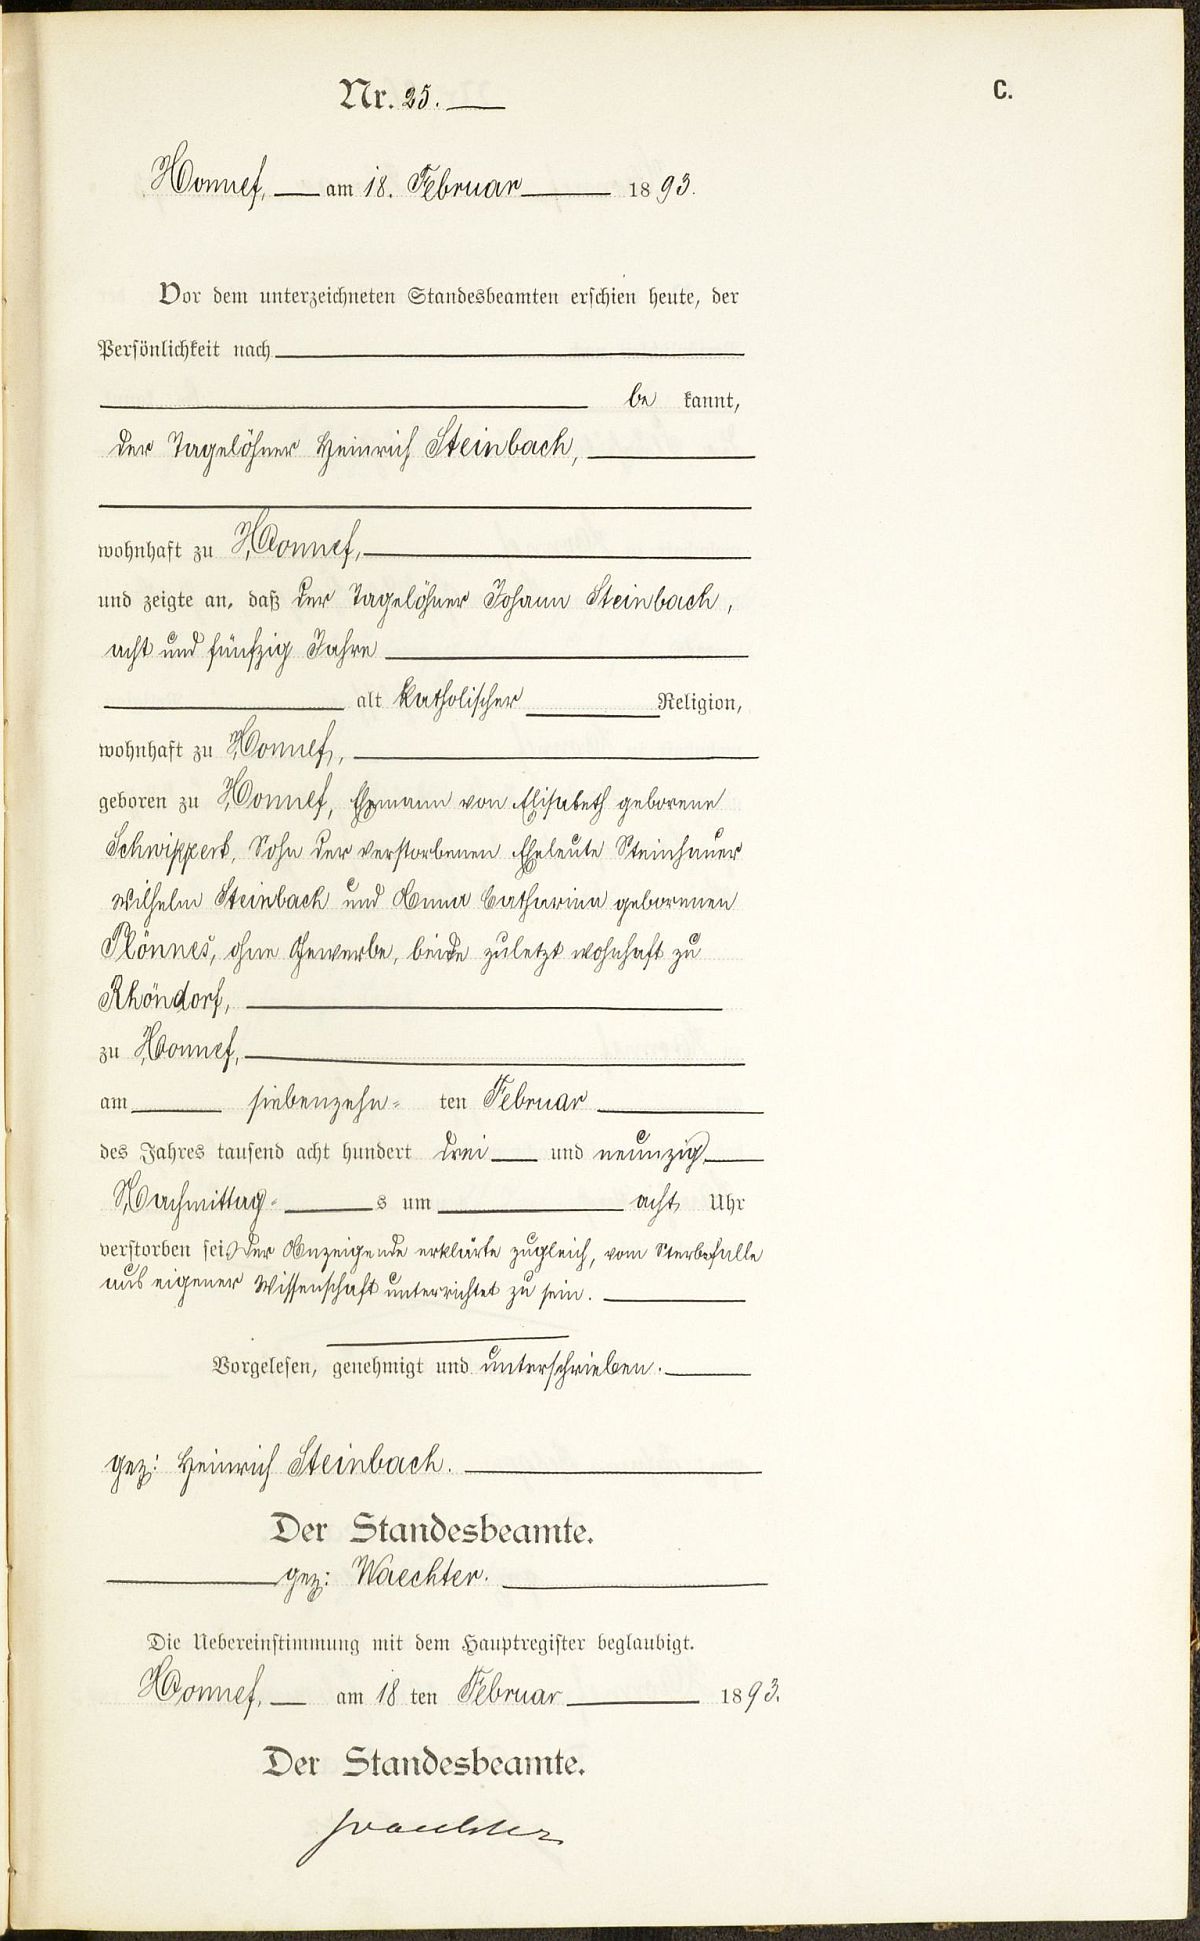 Nr. 25.
C.
Honnef, am 18. Februar 1893.
Vor dem unterzeichneten Standesbeamten erschien heute, der
Persönlichkeit nach
be kannt,
der Tagelöhner Heinrich Steinbach,
wohnhaft zu Honnef,
und zeigte an, daß der Tagelöhner Johann Steinbach,
acht und fünfzig Jahre
alt katholischer Religion,
wohnhaft zu Honnef,
geboren zu Honnef, Ehemann von Elisabeth geborene
Schwippert, Sohn der verstorbenen Eheleute Steinhauer
Wilhelm Steinbach und Anna Catharina geborenen
Plönnes, ohne Gewerbe, beide zuletzt wohnhaft zu
Rhöndorf,
zu Honnef,
am siebenzehn- ten Februar
des Jahres tausend acht hundert drei und neunzig
Nachmittag- s um acht Uhr
verstorben sei. Der Anzeigende erklärte zugleich, vom Sterbefalle
aus eigener Wissenschaft unterrichtet zu sein.
Vorgelesen, genehmigt und unterschrieben.
gez: Heinrich Steinbach.
Der Standesbeamte.
gez: Waechter.
Die Uebereinstimmung mit dem Hauptregister beglaubigt.
Honnef, am 18 ten Februar 1893.
Der Standesbeamte.
Waechter